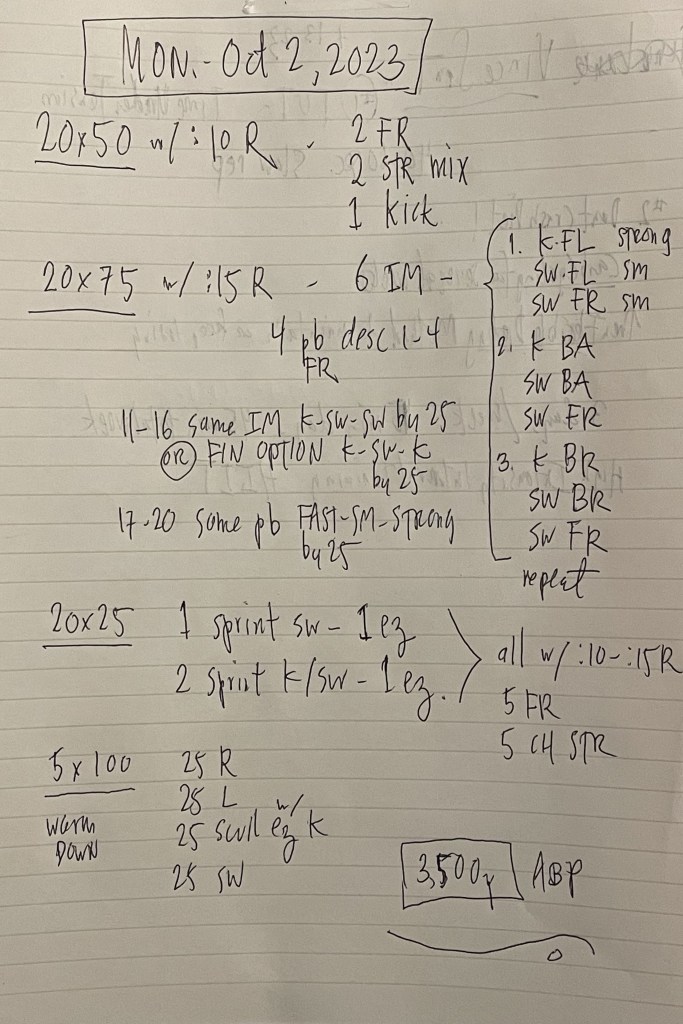 MON. - Oct 2, 2023
20x50 w/ :10 R - 2 FR
2 STR mix
1 kick
20x75 w/ :15 R - 6 IM -
1. K FL strong
SW FL SM
SW FR SM
2. K BA
SW BA
SW FR
3. K BR
SW BR
SW FR
repeat
4 pb desc 1-4
FR
11-16 same IM K-SW-SW by 25
OR FIN OPTION K-SW-K
by 25
17-20 same pb FAST-SM-STRONG
by 25
20x25 1 sprint sw - 1 ez
2 sprint k/sw - 1 ez.
all w/ :10-:15 R
5 FR
5 CH STR
5 x 100 25 R
25 L
WARM DOWN 25 scull w/ ez k
25 SW
3,500y ABP